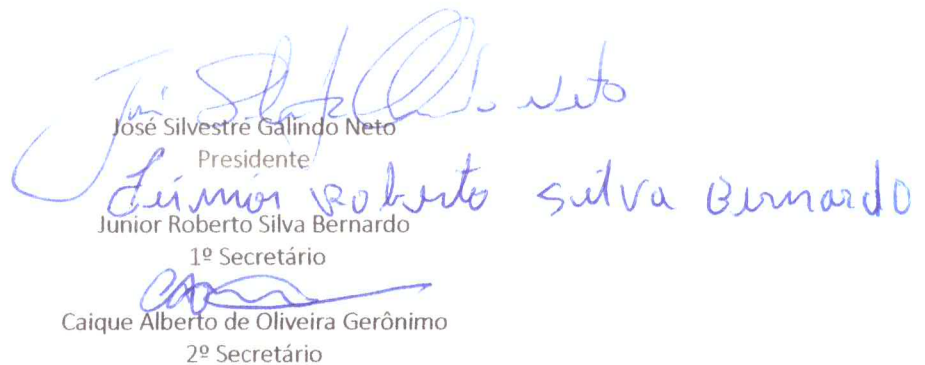 José Silvestre Galindo Neto
José Silvestre Galindo Neto
Presidente
Júnior Roberto Silva Bernardo
Junior Roberto Silva Bernardo
1º Secretário
Caique Alberto de Oliveira Gerônimo
2º Secretário